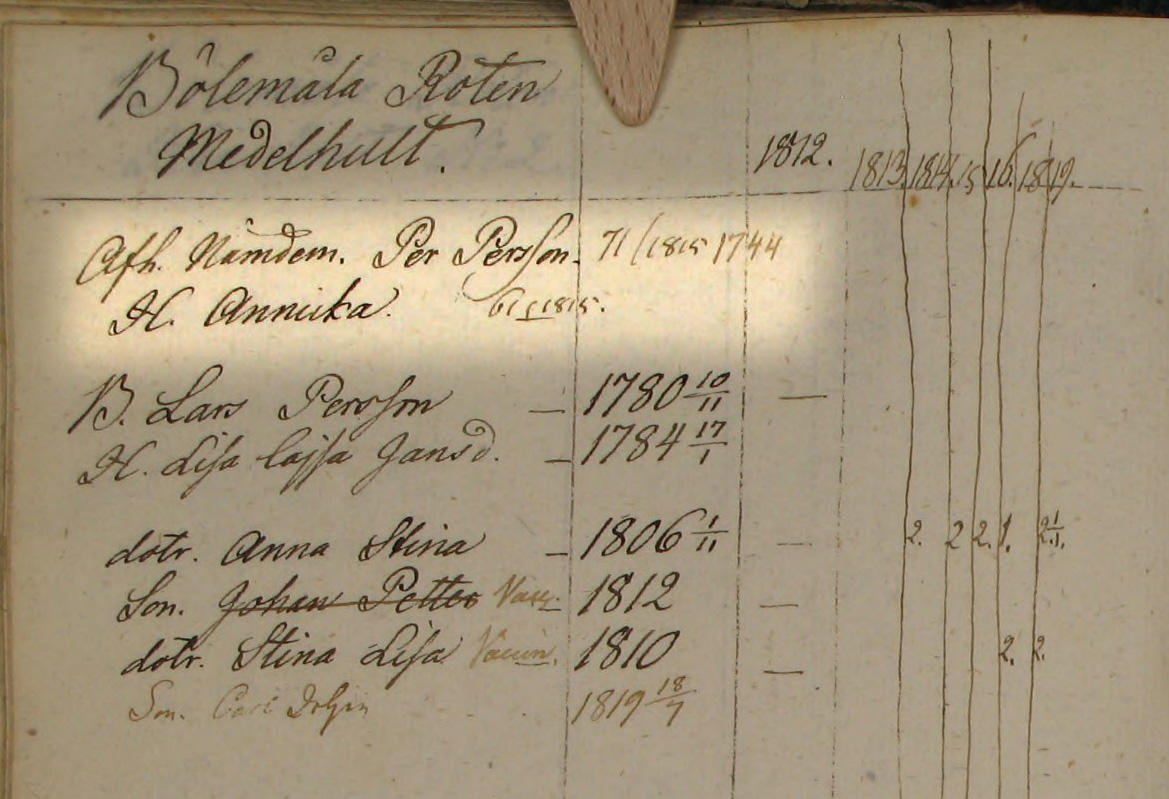 Bölemåla Roten
Medelhult.
1812. 1813. 1814. 15 16. 18 19.
Afh. Nämdem. Per Persson. 71/1815 1744
H. Annicka. 61 1815.
B. Lars Persson — 1780 10/11 —
H. Lisa Cajsa Jansd. — 1784 17/1
dotr. Anna Stina — 1806 1/11 — 2. 2 2. 1. 2 1/1.
Son. Johan Petter Vacc. — 1812 —
dotr. Stina Lisa Vaccin. 1810 — 2. 2.
Son. Carl 1819 18/7